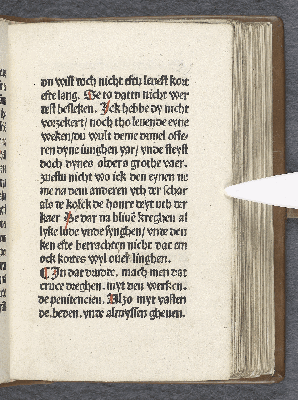 du wilt doch nicht efte leuest kort
efte lang. So to datin nicht wer
dest besleken. Ick hebbe dy nicht
vorzekert/ noch tho leuende eyne
weken/ du wult deme duuel offe-
ren dyne iunghen yar/ vnde steyst
doch dynes olders grothe vaer.
suestu nicht wo ick den eynen ne
me na dem anderen vth der schar
als de kolck de honre teyt vth der
kaer De dar na bliue kreghen al
lyke lude vnde synghen/ vnde den
ken efte betrachten nicht dat em
ock kortes wyl ouer linghen.
In dat durde, mach men dat
cruce dreghen. myt den werken.
de penitencien. Alzo myt vasten
de. beden. vnde almyssen gheuen.